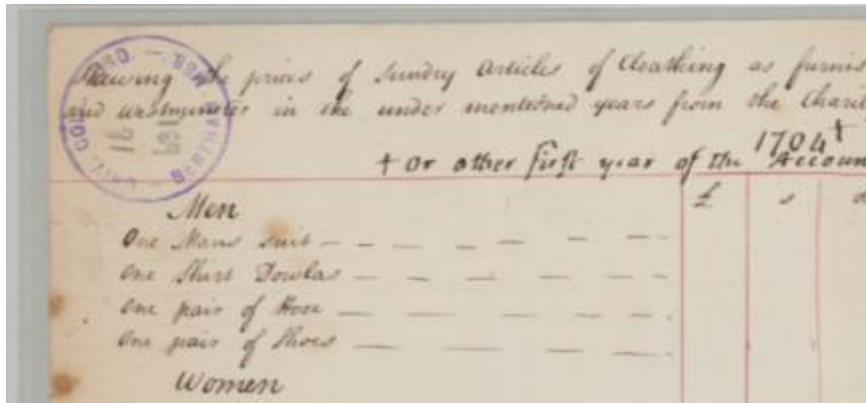 Shewing the prices of Sundry Articles of Cloathing as furnis
and Westminster in the under mentioned years from the Chari
1704 +
+ or other first year of the Account
£ s d
Men
One Mans suit
One Shirt Dowlas
One pair of Hose
One pair of Shoes
Women
UNIV. COLL. LOND. BENTHAM MSS.